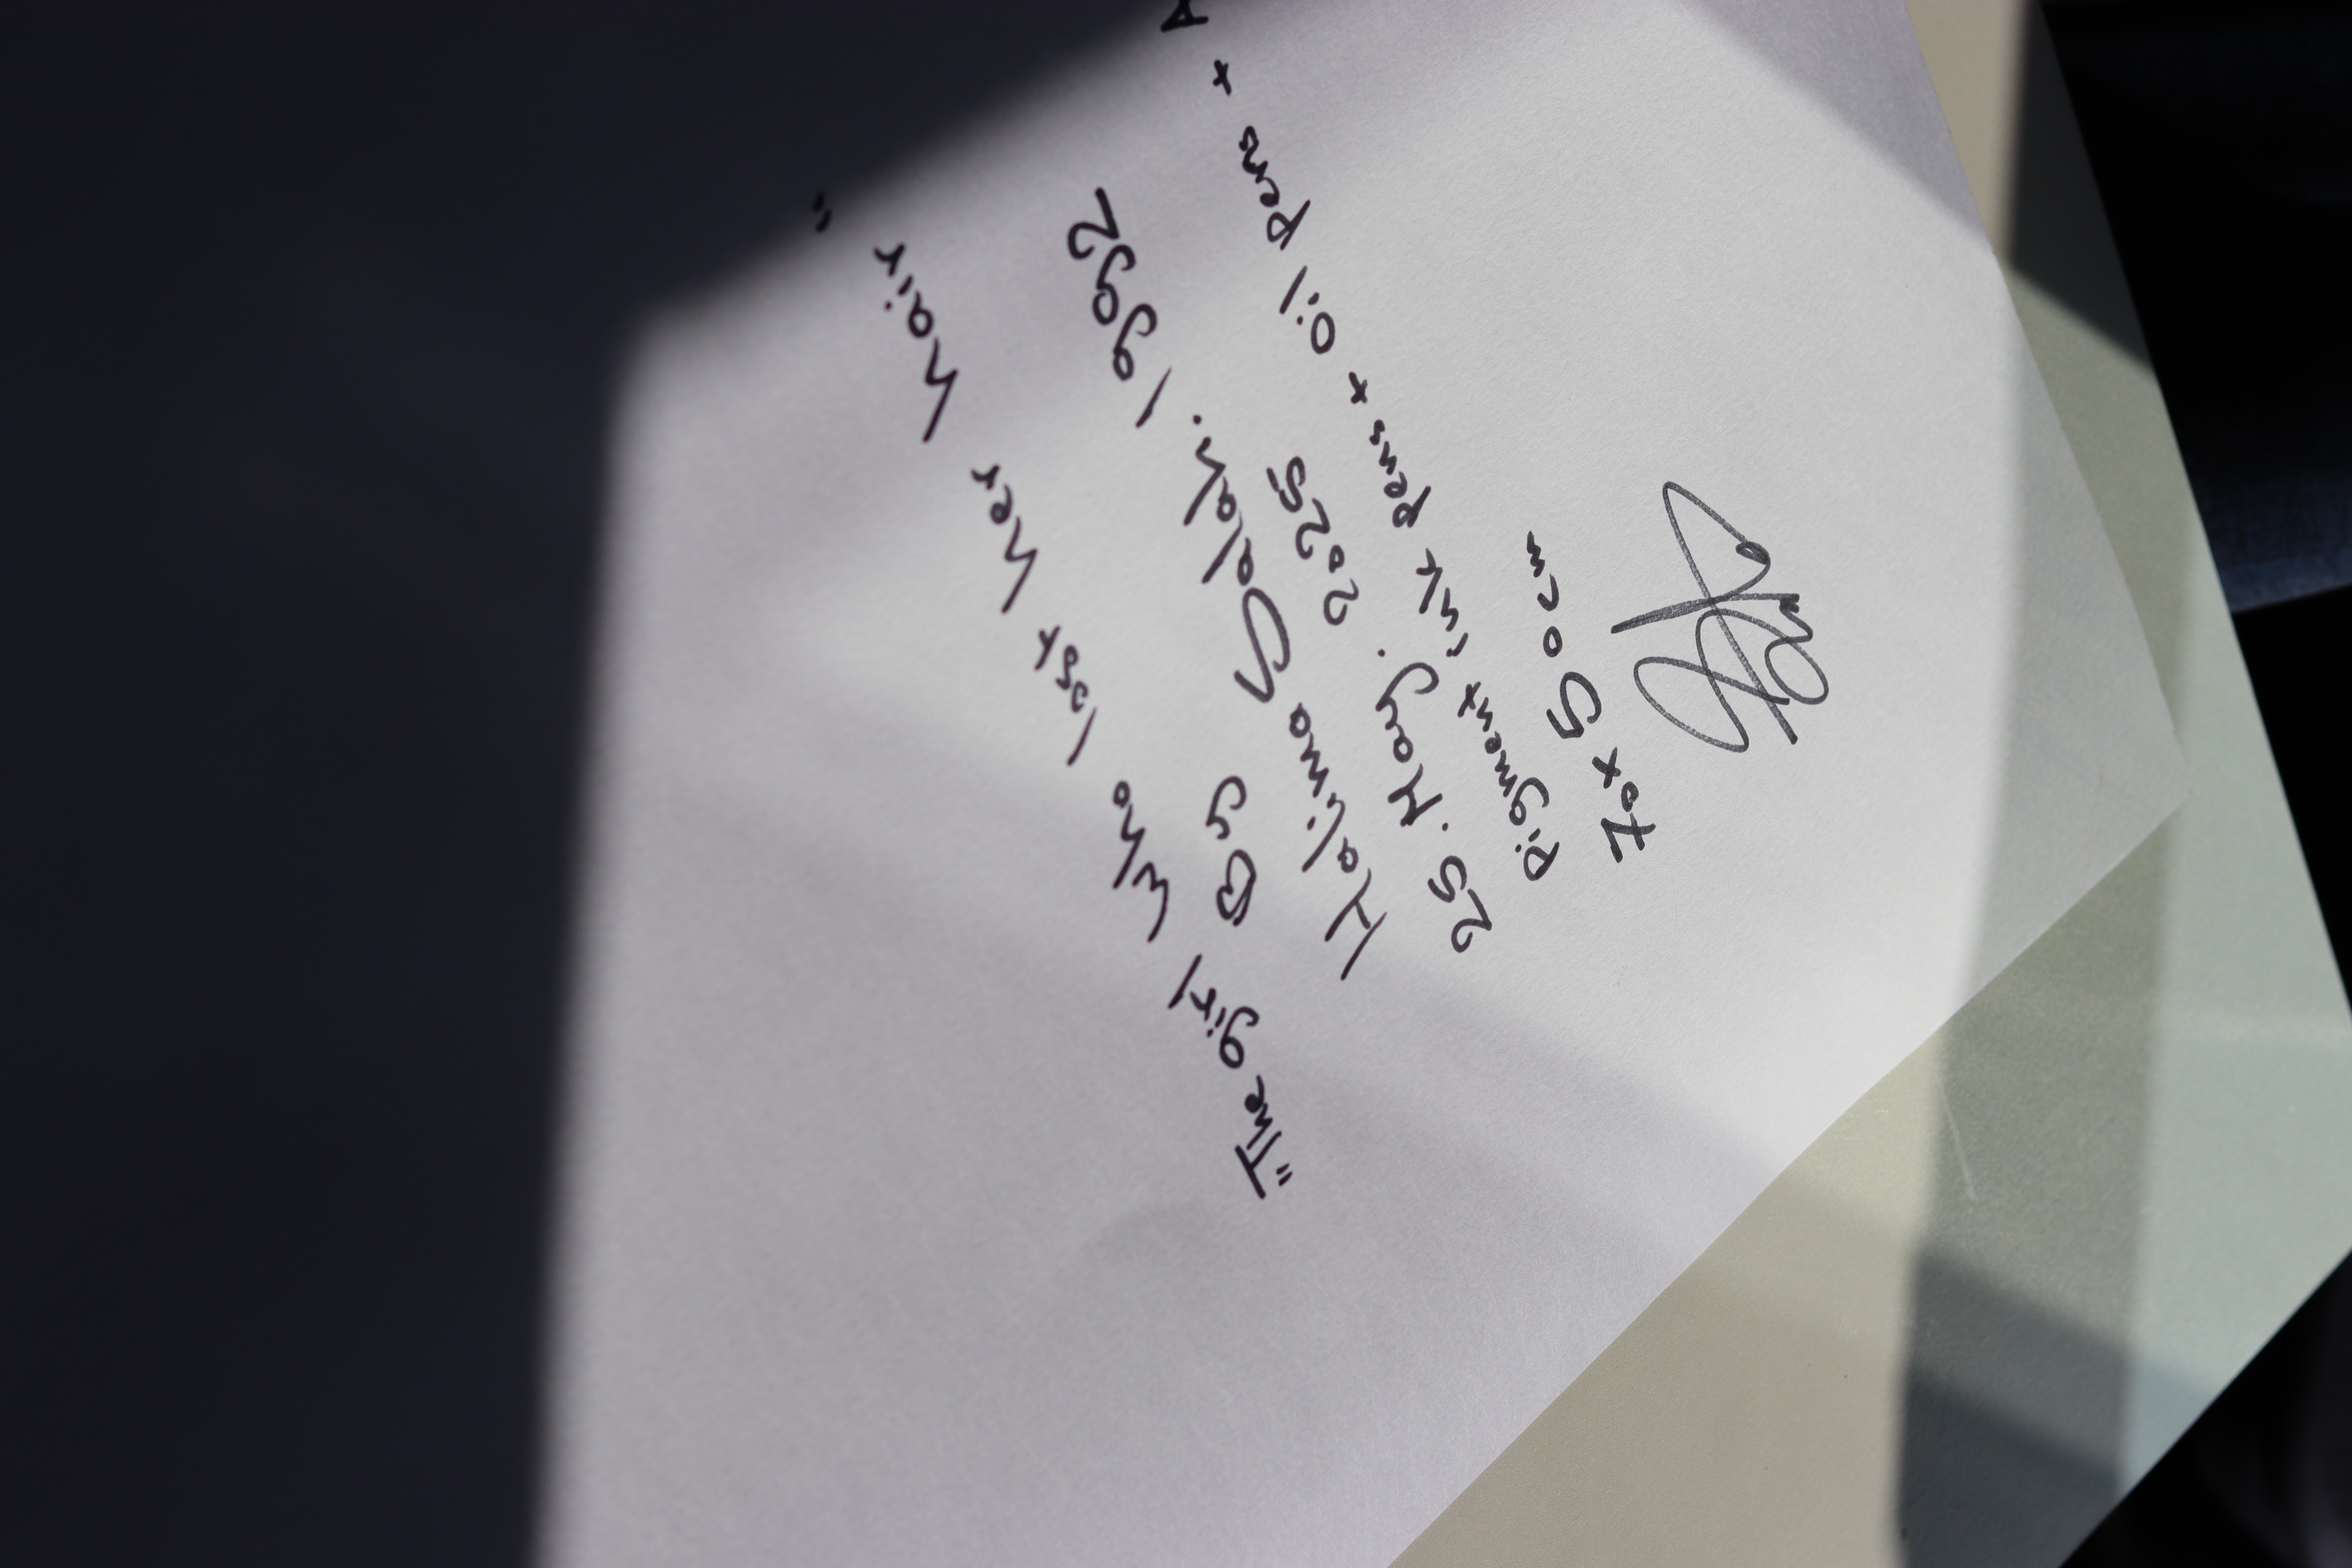 "The girl who lost her hair"
By
Halima Salah. 1992
25. May. 2025
Pigment ink pens + Oil pens + A
70x50cm